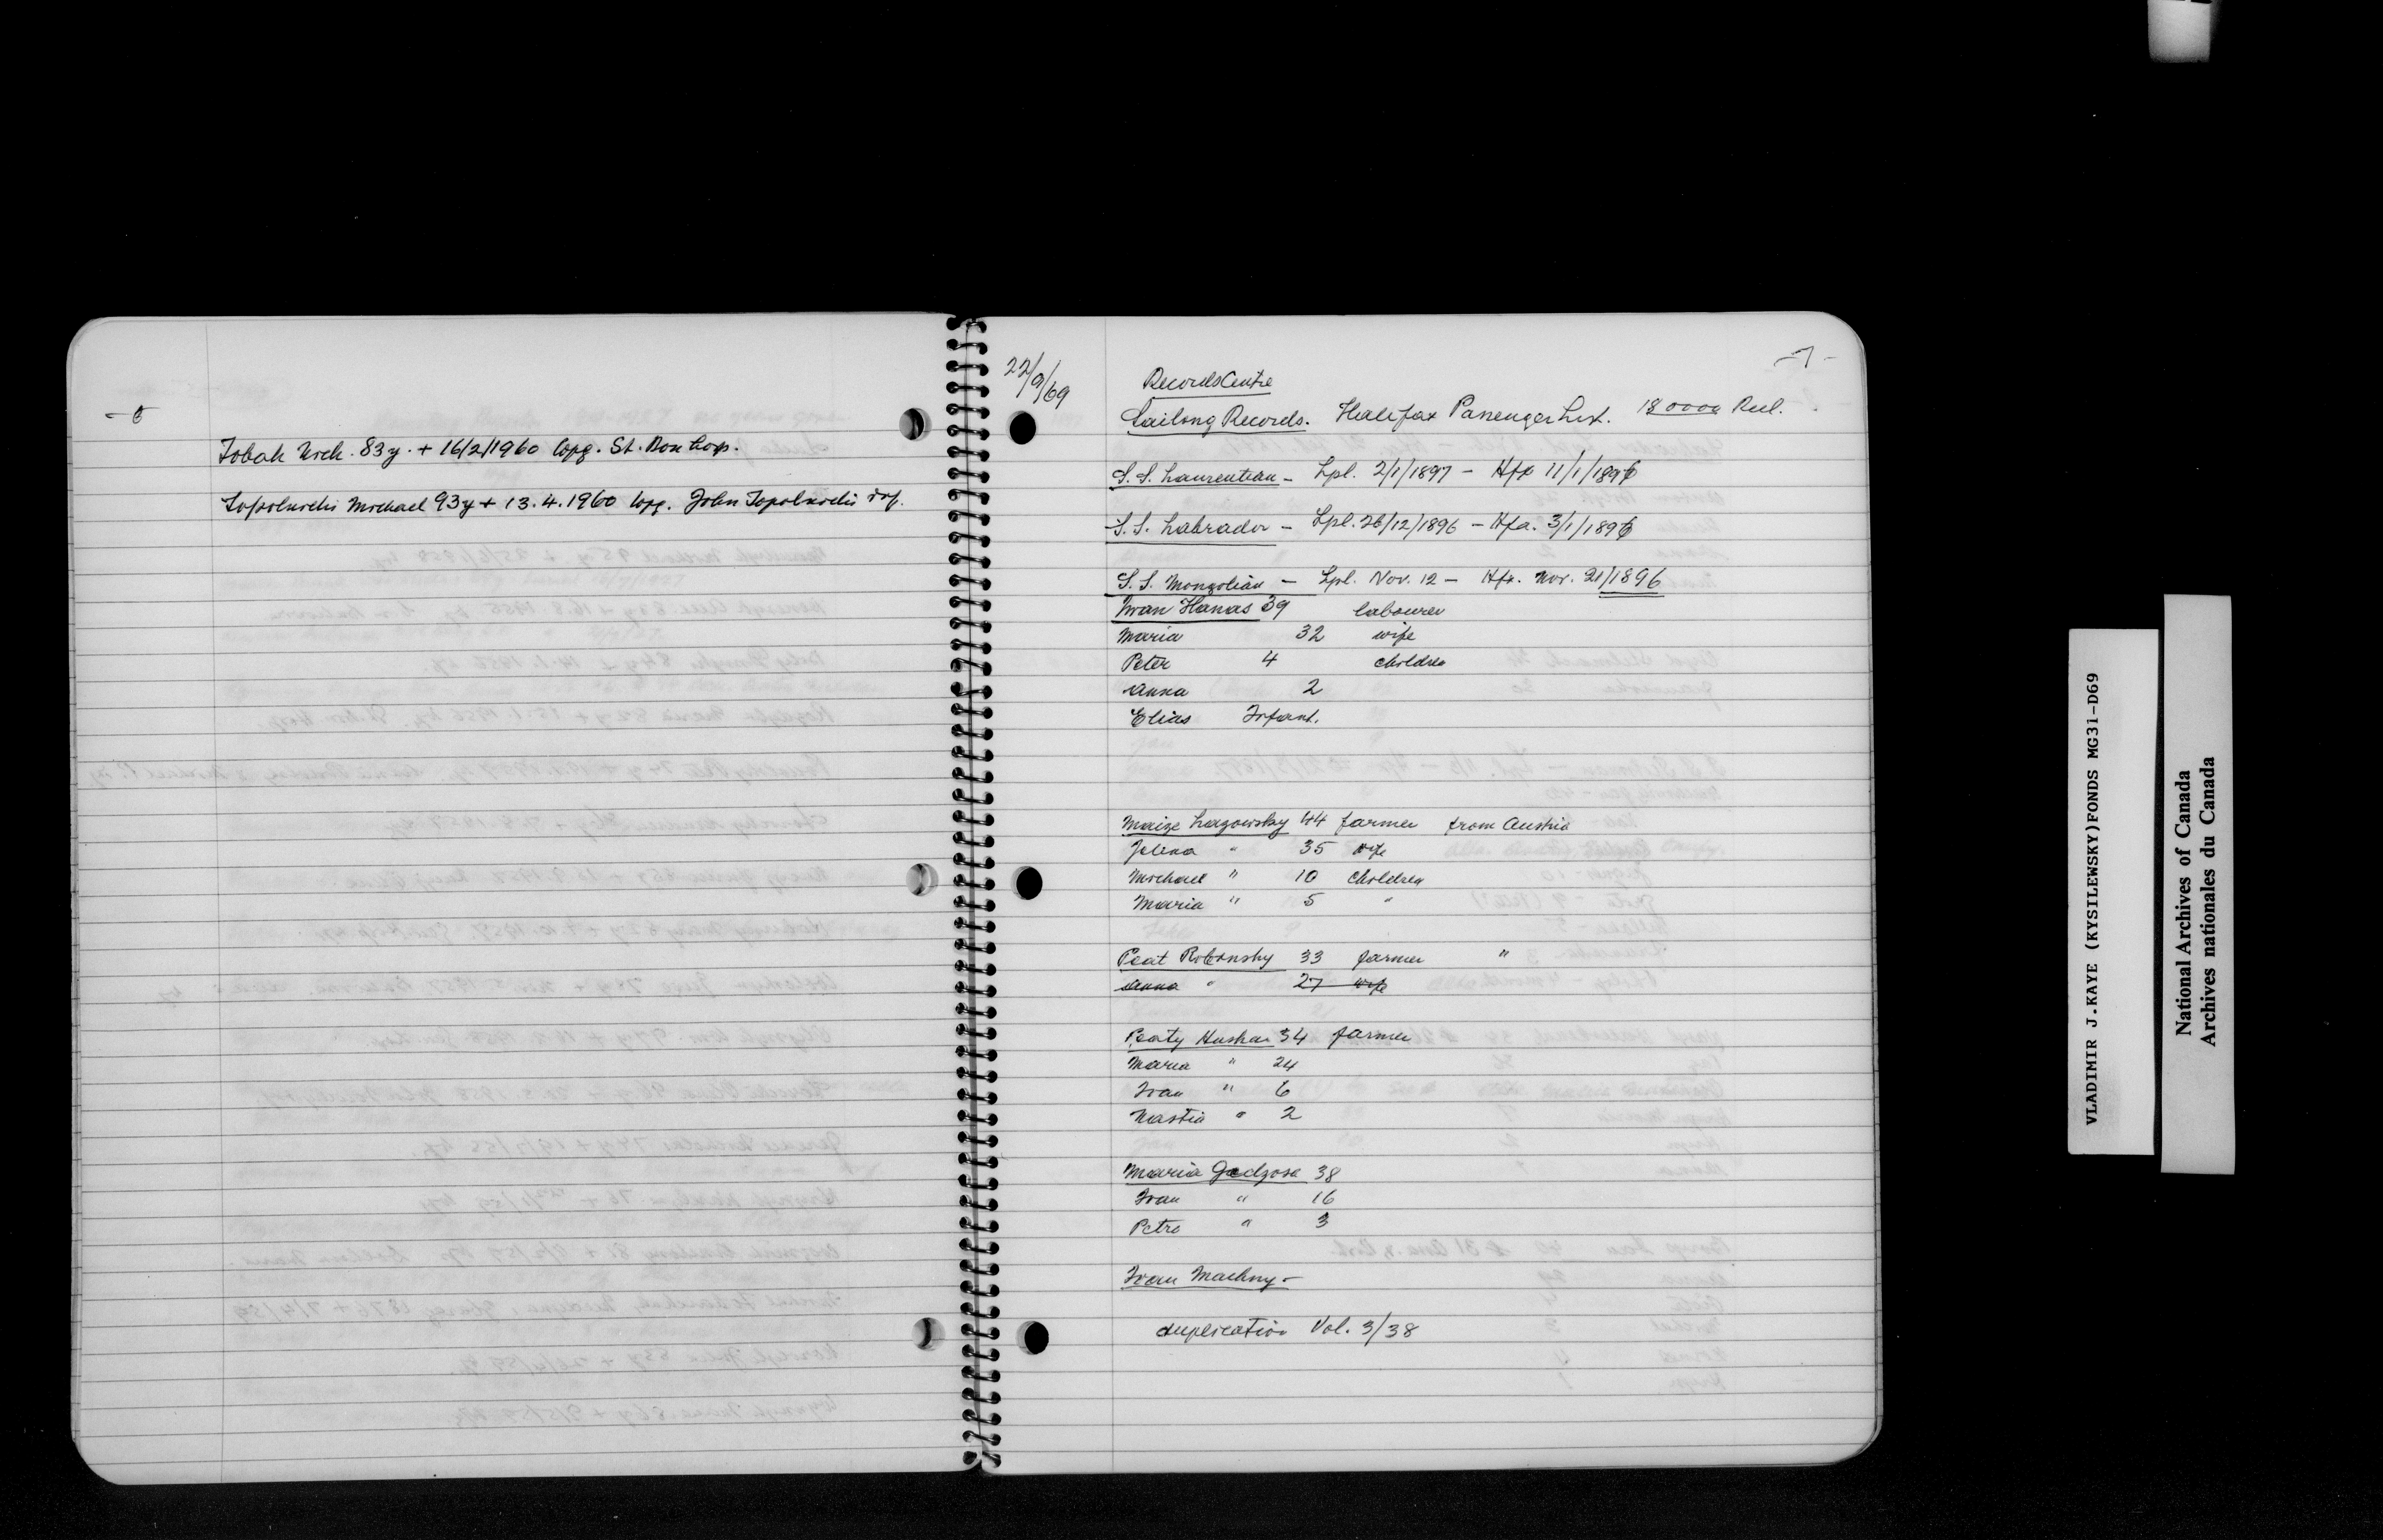 - 6
Tobak Nick. 83y. + 16/2/1960 Wpg. St. Bon hosp.
Topolnicki Michael 93y + 13.4.1960 Wpg. John Topolnicki
-7-
22/9/69
Records Centre
Sailing Records. Halifax Passenger List. Reel.
S.S. Laurentian - Lpl. 2/1/1897 - Hfx 11/1/1896
S.S. Labrador - Lpl. 26/12/1896 - Hfx. 3/1/1896
S.S. Mongolian - Lpl. Nov. 12 - Hfx. Nov. 21/1896
Ivan Hanas 39 labourer
Maria 32 wife
Peter 4 children
Anna 2
Elias Infant.
Maize Lazowsky 44 farmer from Austria
Jelena " 35 wife
Michael " 10 children
Maria " 5 "
Peat Robensky 33 farmer "
Anna " 27 wife
Peaty Hushar 34 farmer
Maria " 24
Ivan " 6
Nastia " 2
Maria Gedzosa 38
Ivan " 16
Petro " 3
Ivan Machny -
duplication Vol. 3/38
VLADIMIR J.KAYE (KYSILEWSKY)FONDS MG31-D69
National Archives of Canada
Archives nationales du Canada